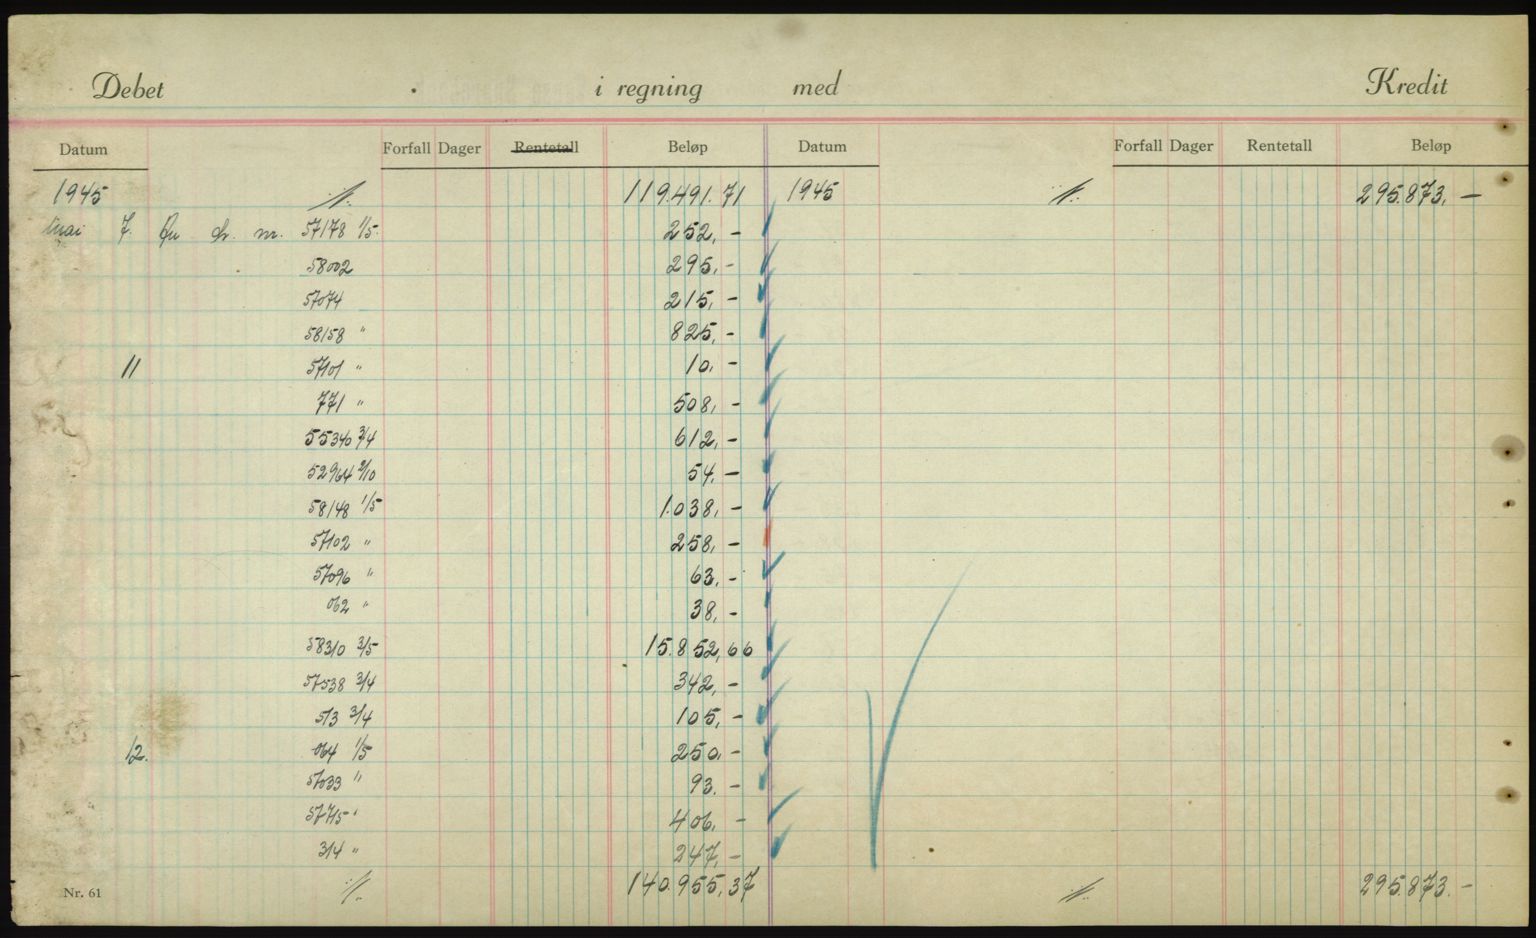 Debet i regning med Kredit
Datum Forfall Dager Rentetall Beløp Datum Forfall Dager Rentetall Beløp
1945 119.491.71 1945 295.873.—
Mai 7. nr. 57178 1/5. 252,—
58002 295,—
57074 215,—
58158 " 825,—
11 57101 " 10,—
771 " 508,—
55340 3/4 612,—
52964 2/10 54,—
58148 1/5 1.038,—
57102 " 258,—
57096 " 63,—
062 " 38,—
58310 3/5 15.852,66
57538 3/4 342,—
513 3/4 105,—
12. 064 1/5 250,—
57033 " 93,—
57715 " 406,—
314 " 247,—
Nr. 61 140.955,37 295.873.—